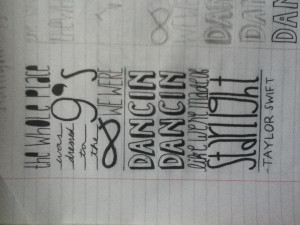 the whole place
was
dressed
to
the
9's
WE WERE
DANCIN
DANCIN
like we're made of
starlight
-TAYLOR SWIFT